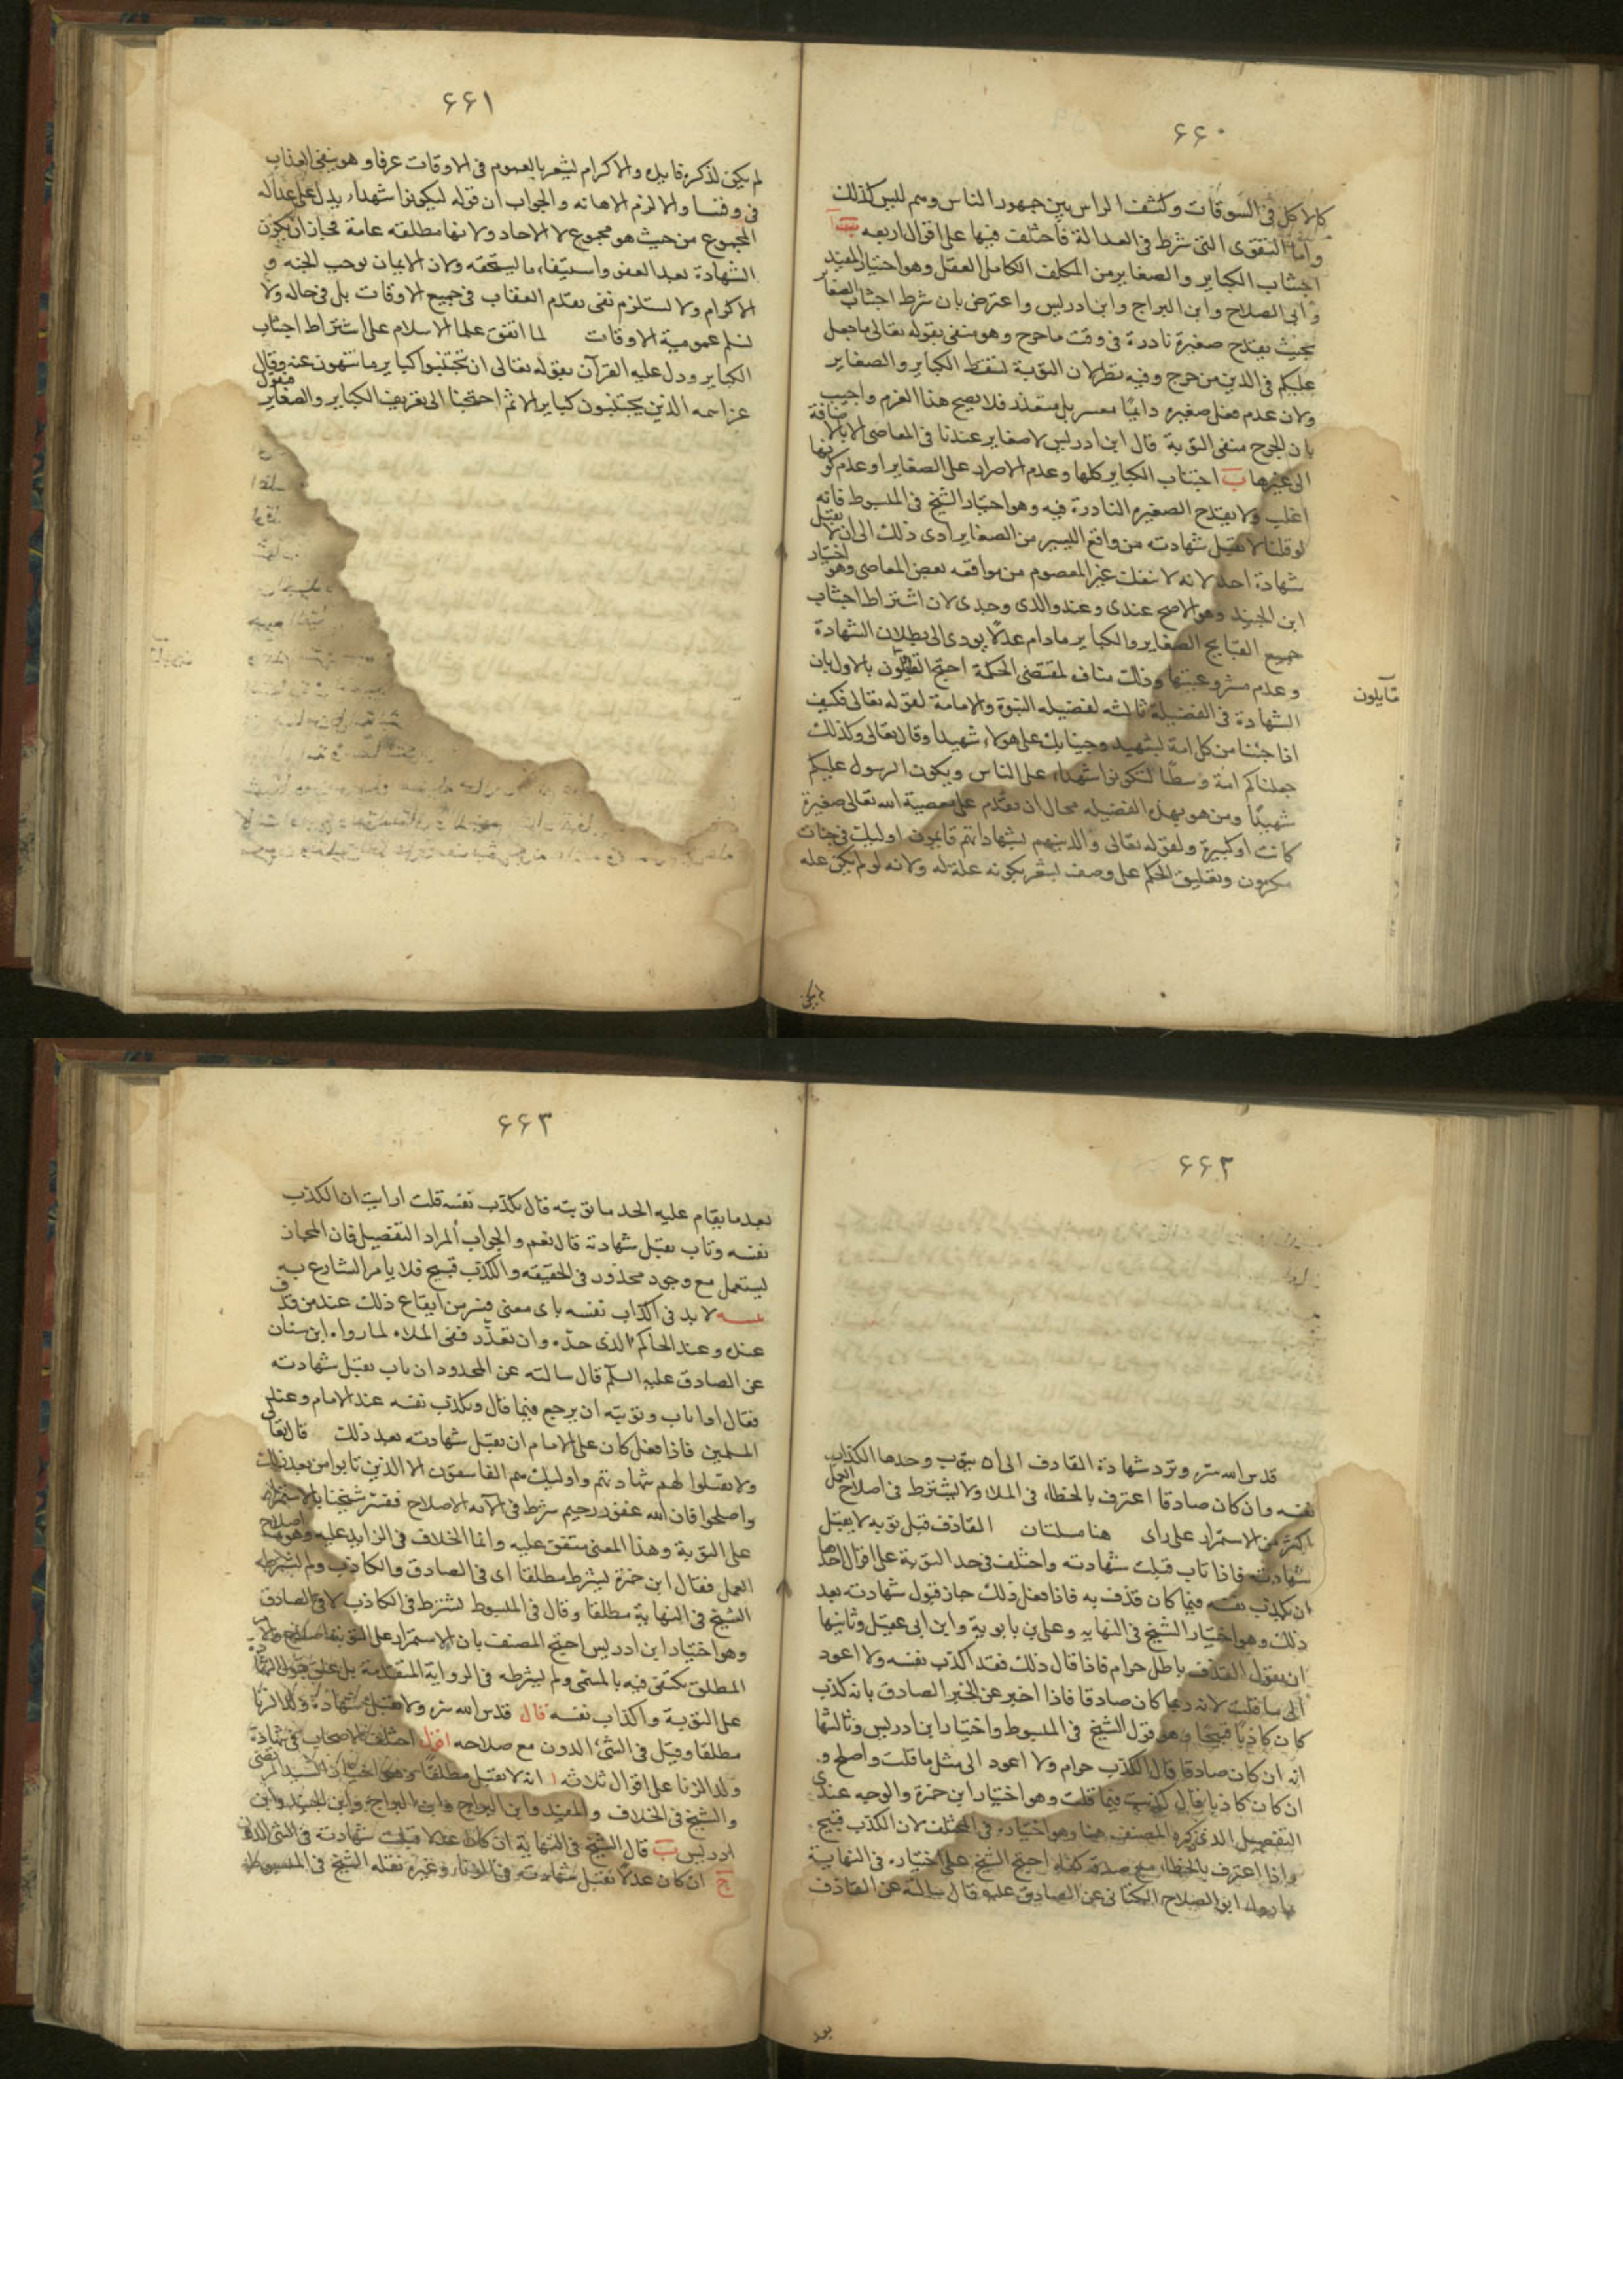 ۶۶۰
كالاكل فى السوقات وكشف الراس بين جمهور الناس وهم ليس كذلك
واما التقوى التى شرط فى العدالة فاختلف فيها على اقوال اربعه
اجتناب الكباير والصغاير من المكلف الكامل العقل وهو اختيار المفيد
وابى الصلاح وابن البراج وابن ادريس واعترض بان شرط اجتناب الصغاير
بحيث يقدح صغيرة نادرة فى وقت ما حرج وهو منفى بقوله تعالى ما جعل
عليكم فى الدين من حرج وفيه نظر لان التوبة تسقط الكباير والصغاير
ولان عدم فعل صغيره دايما معسر بل متعذر فلا يصح هذا العزم واجيب
بان الحرج منفى التوبة قال ابن ادريس لا صغاير عندنا فى المعاصى الا بالاضافة
الى غيرها ب اجتناب الكباير كلها وعدم الاصرار على الصغاير او عدم كونها
اغلب ولا يقدح الصغيره النادرة فيه وهو اختيار الشيخ فى المبسوط فانه
لو قلنا لا تقبل شهادته من واقع اليسير من الصغاير ادى ذلك الى ان لا تقبل
شهادة احد لانه لا ينفك غير المعصوم من مواقعه بعض المعاصى وهو اختيار
ابن الجنيد وهو الاصح عندى وعند والدى وجدى لان اشتراط اجتناب
جميع القبايح الصغاير والكباير مادام عدلا يودى الى بطلان الشهادة
وعدم مشروعيتها وذلك مناف لمقتضى الحكمة احتج القايلون بالاول بان
قايلون
الشهادة فى الفضيلة ثالثه لفضيله النبوة والامامة لقوله تعالى فكيف
اذا جئنا من كل امة بشهيد وجينا بك على هولاء شهيدا وقال تعالى وكذلك
جعلناكم امة وسطا لتكونوا شهداء على الناس ويكون الرسول عليكم
شهيدا ومن هو بهذه الفضيله محال ان يقدم على معصية الله تعالى صغيرة
كانت او كبيرة ولقوله تعالى والذين هم بشهاداتهم قايمون اوليك فى جنات
مكرمون وتعليق الحكم على وصف يشعر بكونه علة له ولانه لو لم يكن عله
لم يكن
۶۶۱
لم يكن لذكره فايده والاكرام ليشعر بالعموم فى الاوقات عرفا وهو ينفى العذاب
فى وقت ما والا لزم الاهانه والجواب ان قوله ليكونوا شهداء يدل على عدالة
المجموع من حيث هو مجموع لا الاحاد ولانها مطلقه عامة فجاز ان يكون
الشهادة بعد العفو واستيفاء ما يستحقه ولان الايمان يوجب الجنه و
الاكرام ولا يستلزم نفى تقدم العقاب فى جميع الاوقات بل فى حاله ولا
نسلم عمومية الاوقات لما اتفق علما الاسلام على اشتراط اجتناب
الكباير ودل عليه القرآن بقوله تعالى ان تجتنبوا كباير ما تنهون عنه وقال
عز اسمه الذين يجتنبون كباير الاثم احتجنا الى تعريف الكباير والصغاير فنقول
۶۶۲
قدس الله سره وترد شهادة القاذف الى ان يتوب وحدها اكذاب
نفسه وان كان صادقا اعترف بالخطاء فى الملا ولا يشترط فى اصلاح العمل
اكثر من الاستمرار على راى هنا مسئلتان القاذف قبل توبه لا يقبل
شهادته فاذا تاب قبلت شهادته واختلف فى حد التوبة على اقوال احدها
ان يكذب نفسه فيما كان قذف به فاذا فعل ذلك جاز قبول شهادته بعد
ذلك وهو اختيار الشيخ فى النهايه وعلى بن بابوية وابن ابى عقيل وثانيها
ان يقول القذف باطل حرام فاذا قال ذلك فقد اكذب نفسه ولا اعود
الى ما قلت لانه ربما كان صادقا فاذا اخبر عن الخبر الصادق بانه كذب
كان كاذبا قبيحا وهو قول الشيخ فى المبسوط واختيار ابن ادريس وثالثها
انه ان كان صادقا قال الكذب حرام ولا اعود الى مثل ما قلت واصلح و
ان كان كاذبا قال كذبت فيما قلت وهو اختيار ابن حمزة والوجه عندى
التفصيل الذى ذكره المصنف هنا وهو اختياره فى المختلف لان الكذب قبيح
واذا اعترف بالخطاء مع صدقه كفاه احتج الشيخ على اختياره فى النهاية
بما رواه ابو الصلاح الكنانى عن الصادق عليه قال سالته عن القاذف
بعد
۶۶۳
بعد ما يقام عليه الحد ما توبته قال يكذب نفسه قلت ارايت ان اكذب
نفسه وتاب يقبل شهادته قال نعم والجواب المراد التفصيل فان المجاز
يستعمل مع وجود محذور فى الحقيقه والكذب قبيح فلا يامر الشارع به
لابد فى اكذاب نفسه باى معنى فسر من ايقاع ذلك عند من قذف
عنده وعند الحاكم الذى حده وان تعذر ففى الملاء لما رواه ابن سنان
عن الصادق عليه السلم قال سالته عن المحدود ان تاب يقبل شهادته
فقال اذا تاب وتوبته ان يرجع فيما قال ويكذب نفسه عند الامام وعند
المسلمين فاذا فعل كان على الامام ان يقبل شهادته بعد ذلك قال تعالى
ولا تقبلوا لهم شهادتهم واوليك هم الفاسقون الا الذين تابوا من بعد ذلك
واصلحوا فان الله غفور رحيم شرط فى الآيه الاصلاح ففسر شيخنا بالاستمرار
على التوبة وهذا المعنى متفق عليه وانما الخلاف فى الزايد عليه وهو اصلاح
العمل فقال ابن حمزة يشرط مطلقا اى فى الصادق والكاذب ولم يشرطه
الشيخ فى النهاية مطلقا وقال فى المبسوط يشترط فى الكاذب لا فى الصادق
وهو اختيار ابن ادريس احتج المصنف بان الاستمرار على التوبة
المطلق يكتفى فيه بالمسمى ولم يشرطه فى الرواية المتقدمة بل علق قبول الشهادة
على التوبة واكذاب نفسه قال قدس الله سره ولا تقبل شهادة ولد الزنا
مطلقا وقيل فى الشئ الدون مع صلاحه اقول اختلف الاصحاب فى شهادة
ولد الزنا على اقوال ثلاثه ا انه لا تقبل مطلقا وهو اختيار السيد المرتضى
والشيخ فى الخلاف والمفيد وابن البراج وابن الجنيد وابن
ادريس ب قال الشيخ فى النهاية ان كان عدلا قبلت شهادته فى الشئ الدون
ج ان كان عدلا تقبل شهادته فى الزناء وغيره نقله الشيخ فى المبسوط